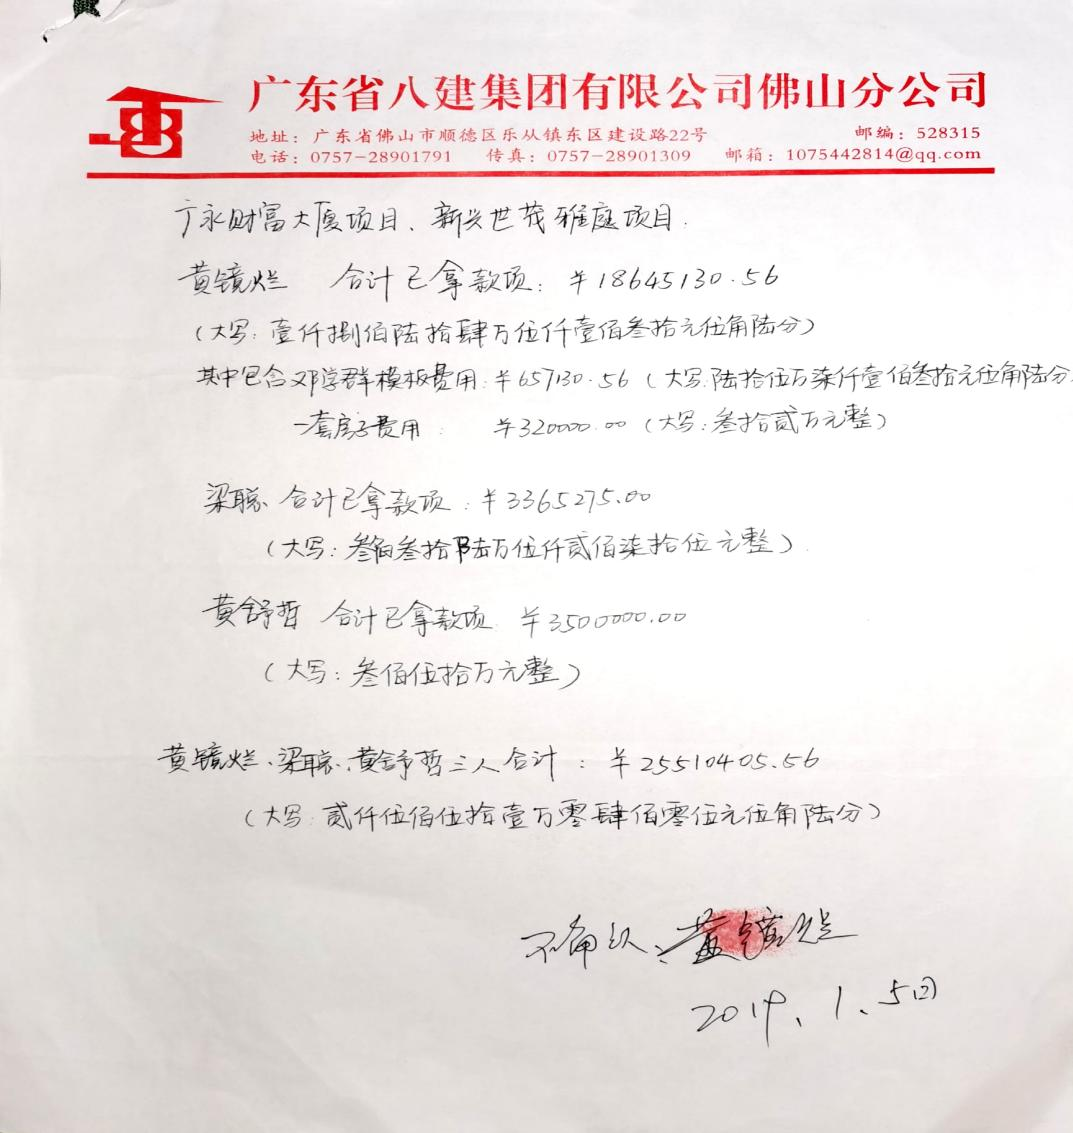 广东省八建集团有限公司佛山分公司
地址：广东省佛山市顺德区乐从镇东区建设路22号 邮编：528315
电话：0757-28901791 传真：0757-28901309 邮箱：1075442814@qq.com
广永财富大厦项目、新兴世茂雅庭项目.
黄镜烂 合计已拿款项：¥18645130.56
（大写：壹仟捌佰陆拾肆万伍仟壹佰叁拾元伍角陆分）
其中包含邓学群模板费用：¥657130.56（大写：陆拾伍万柒仟壹佰叁拾元伍角陆分
一套房子费用：¥320000.00（大写：叁拾贰万元整）
梁聪 合计已拿款项：¥3365275.00
（大写：叁佰叁拾陆万伍仟贰佰柒拾伍元整）.
黄舒哲 合计已拿款项：¥3500000.00
（大写：叁佰伍拾万元整）
黄镜烂、梁聪、黄舒哲三人合计：¥25510405.56
（大写：贰仟伍佰伍拾壹万零肆佰零伍元伍角陆分）
不确认、黄镜烂
2019、1、5日